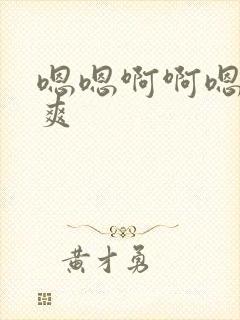 嗯嗯啊啊嗯
爽
黄才勇